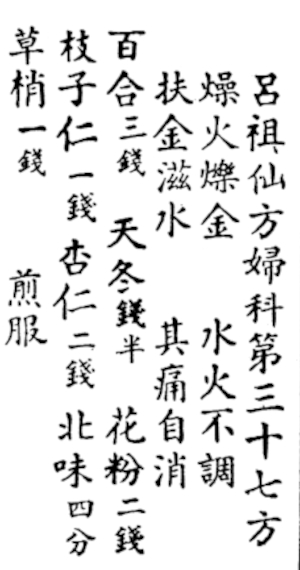 呂祖仙方婦科第三十七方
燥火爍金　水火不調
扶金滋水　其痛自消
百合三錢　天冬錢半　花粉二錢
枝子仁一錢　杏仁二錢　北味四分
草梢一錢　煎服